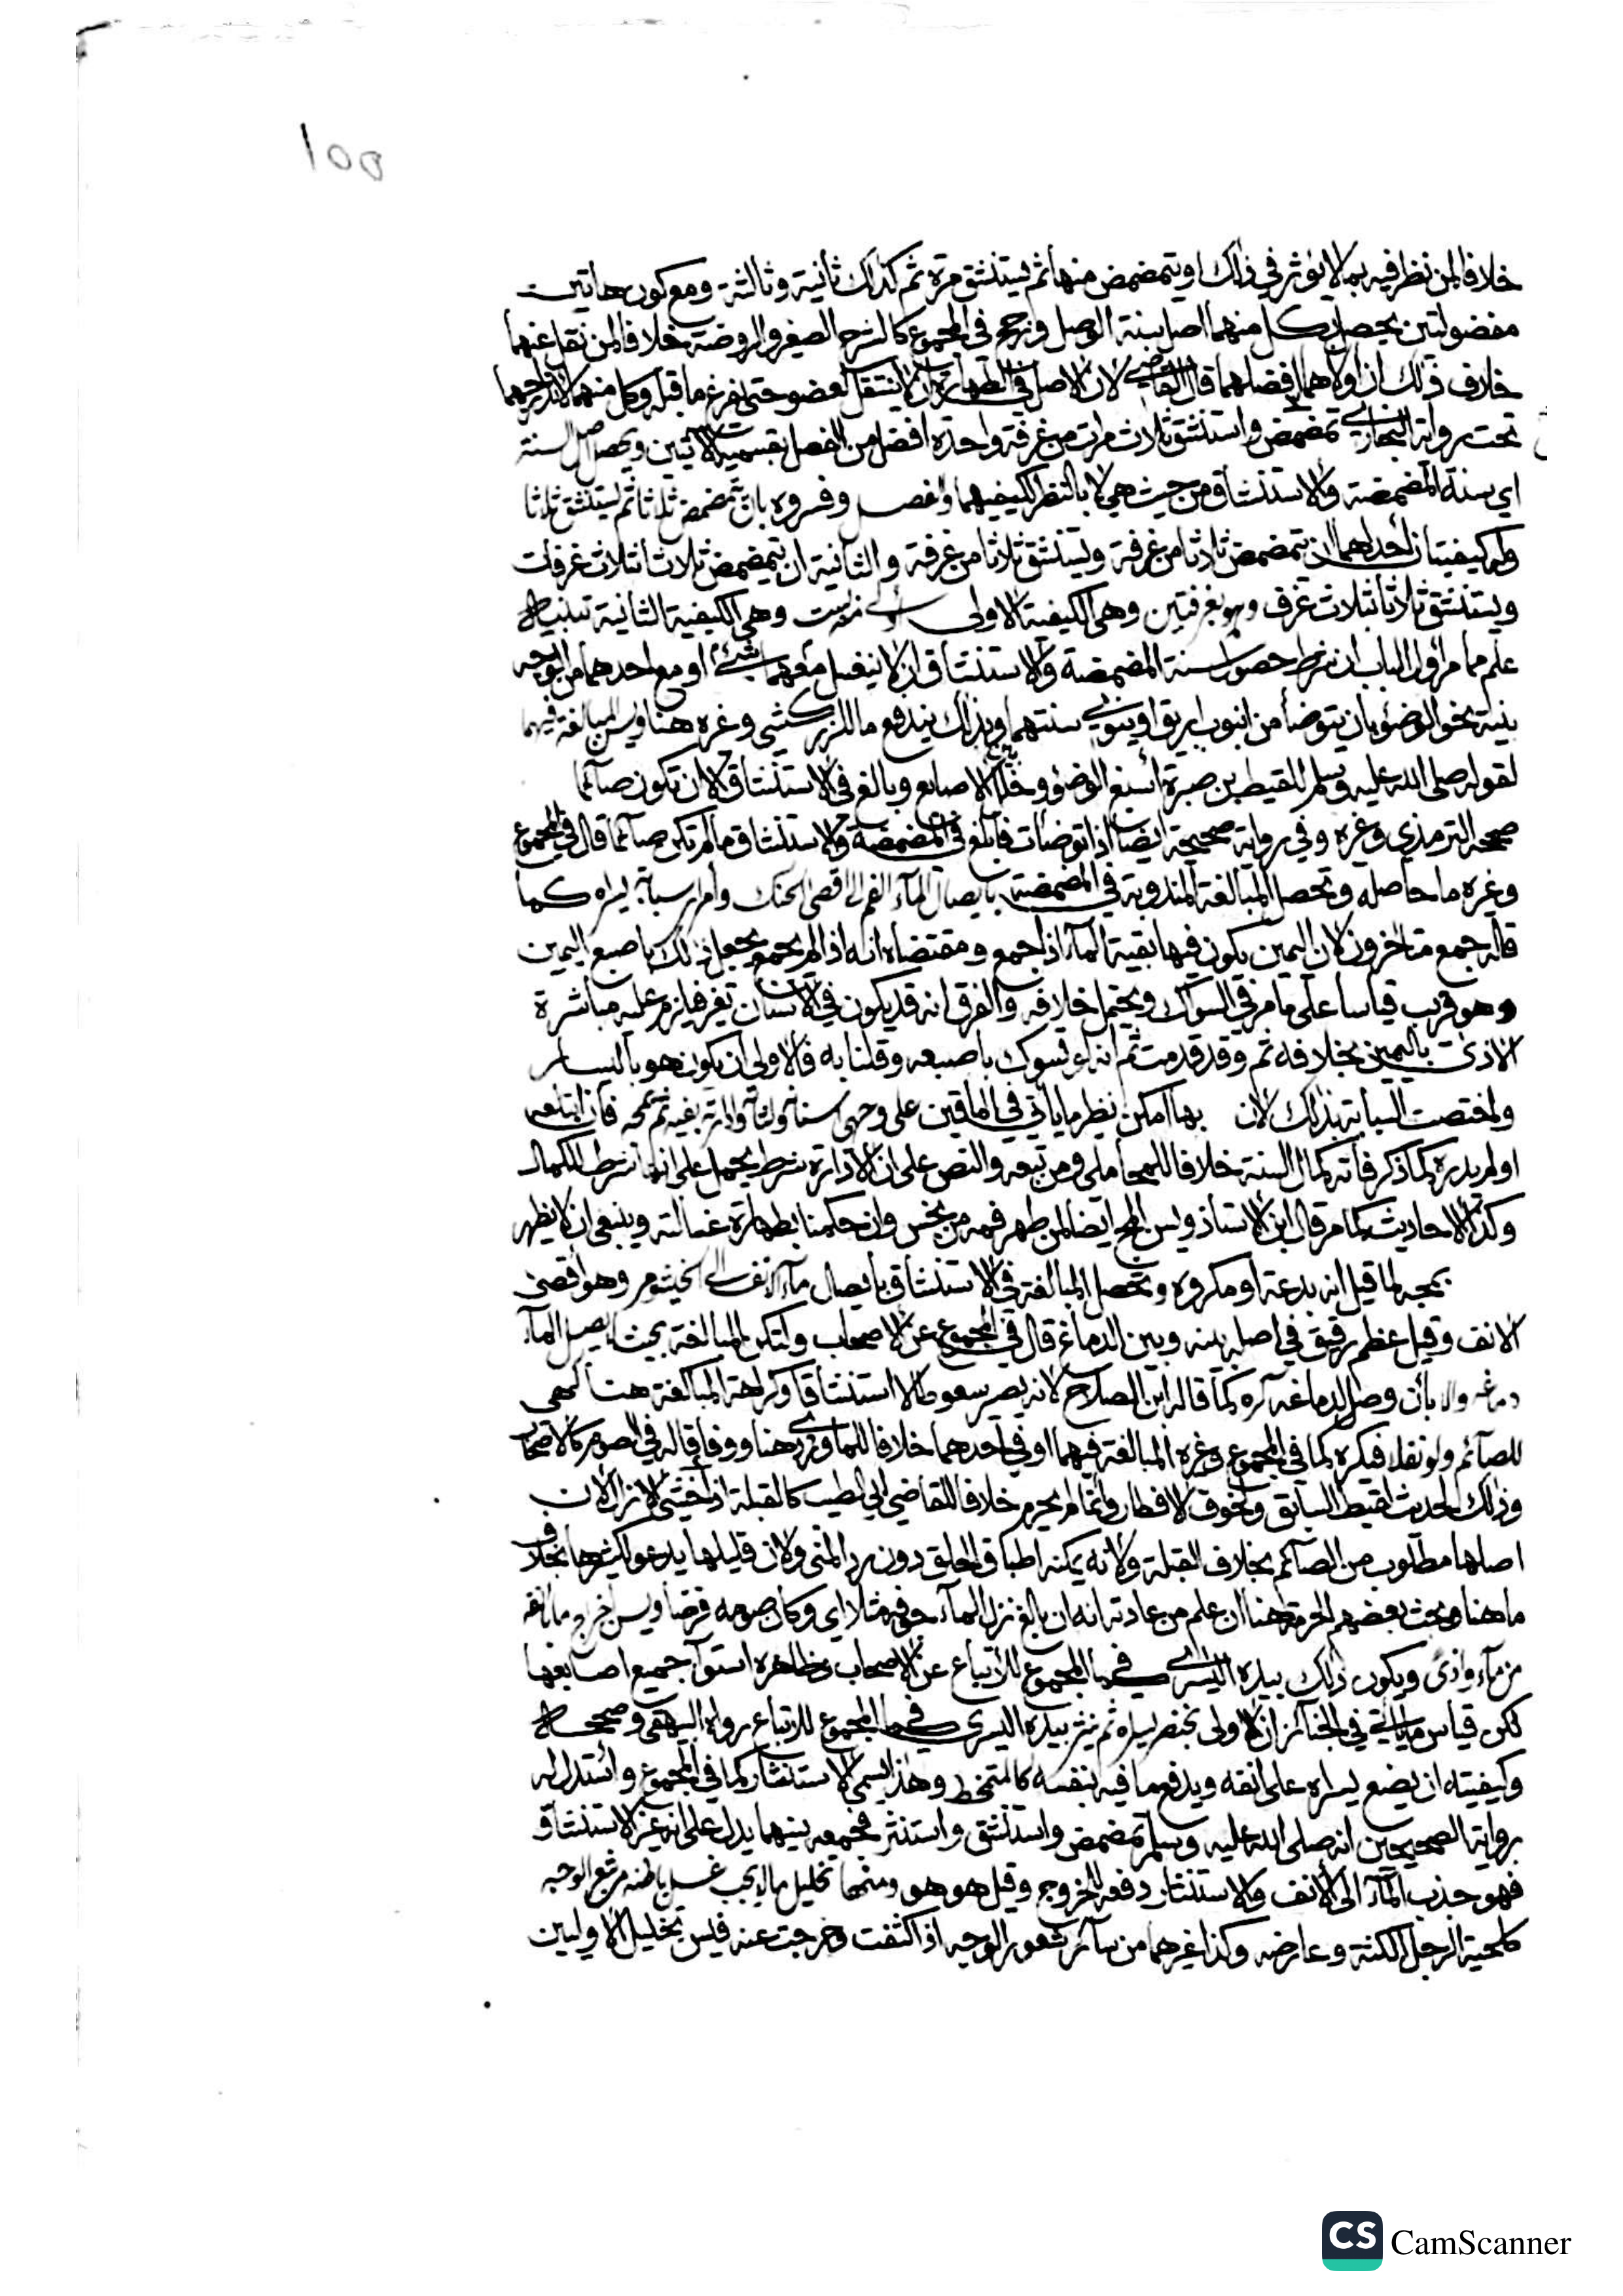 ١٥٥
خلافا لمن نظر فيه بما لا يؤثر في ذلك او يتمضمض منها ثم يستنشق مرة ثم كذلك ثانية وثالثة ومع كون هاتين
مفضولتين يحصل بكل منهما اصل سنة الوصل ورجح في المجموع كالشرح الصغير والروضة خلافا لمن نقل عنهما
خلاف ذلك ان اولاهما افضلهما قال القاضي لان الاصل في الطهارة ان لا ينتقل لعضو حتى يفرغ ما قبله وكل منهما لاندراجهما
تحت رواية البخاري تمضمض واستنشق ثلاث مرات من غرفة واحدة افضل من الفصل بقسميه الاتيين ويحصل اصل السنة
اي سنة المضمضة والاستنشاق من حيث هي لا بالنظر لكيفيتهما وفسروه بان يتمضمض ثلاثا ثم يستنشق ثلاثا
وله كيفيتان احداهما ان يتمضمض ثلاثا من غرفة ويستنشق ثلاثا من غرفة والثانية ان يتمضمض ثلاثا بثلاث غرفات
ويستنشق ثلاثا بثلاث غرف وهو بغرفتين وهي الكيفية الاولى وهي الكيفية الثانية تنبيه
علم مما مر اول الباب ان شرط حصول سنة المضمضة والاستنشاق ان لا ينغسل معهما شئ او مع احدهما من الوجه
بنية نحو الوضوء بان يتوضأ من انبوب ابريق او ينوي سنتهما وبذلك يندفع ما للزركشي وغيره هنا ويسن المبالغة فيهما
لقوله صلى الله عليه وسلم للقيط بن صبرة أسبغ الوضوء وخلل بين الاصابع وبالغ في الاستنشاق الا ان تكون صائما
صححه الترمذي وغيره وفي رواية صحيحة ايضا اذا توضات فابلغ في المضمضة والاستنشاق ما لم تكن صائما قال في المجموع
وغيره ما حاصله وتحصل المبالغة المندوبة في المضمضة بايصال الماء الفم الى اقصى الحنك وامرار سبابة يسراه كما
قاله جمع متاخرون لان اليمين يكون فيها بقية الماء اذا جمع ومقتضاه انه اذا لم يجمع يجعل ذلك باصبع اليمين
وهو قريب قياسا على ما مر في السواك ويحتمل خلافه والفرق انه قد يكون في الاسنان تغير فيلزم عليه مباشرة
الاذى باليمين بخلافه ثم وقد قدمت ثم انه لو تسوك باصبعه وقلنا به فالاولى ان يكون هو باليسار
واختصت السبابة بذلك لان بها امكن نظير ما ياتي في الماقين على وجهي اسنانه ولثاته وادارته بفيه ثم مجه فان ابتلعه
او لم يدره كما ذكر فاته كمال السنة خلافا للمحاملي ومن تبعه والنص على ان الادارة شرط يحمل على انها شرط للكمال
وكذا الاحاديث كما مر قال ابن الاستاذ ويسن المج ايضا لمن طهر فمه من نجس وان حكمنا بطهارة غسالته وينبغي ان لا يظهر
بمجه لما قيل انه بدعة او مكروه وتحصل المبالغة في الاستنشاق بايصال ماء الانف الى الخيشوم وهو اقصى
الانف وقيل عظم رقيق في اصله بينه وبين الدماغ قال في المجموع عن الاصحاب ولتكن المبالغة بحيث يصل الماء
دماغه والا بأن وصل لدماغه كره كما قاله ابن الصلاح لانه يصير سعوطا لا استنشاقا وكراهة المبالغة هنا كهي
للصائم ولو نفلا فيكره كما في المجموع وغيره المبالغة فيهما او في احدهما خلافا للماوردي هنا ووفاقا له في الصوم كالاصحاب
وذلك لحديث لقيط السابق ولخوف الافطار وانما لم يحرم خلافا للقاضي ابي الطيب كالقبلة اذا خشي الانزال لان
اصلها مطلوب من الصائم بخلاف القبلة ولانه يمكنه اطباق الحلق دون رد المني ولان قليلها يدعو لكثيرها بخلاف
ما هنا وبحث بعضهم الحرمة هنا ان علم من عادته انه ان بالغ نزل الماء جوفه مثلا اي وكان صومه فرضا ويسن اخراج ما بانفه
من ماء واذى ويكون ذلك بيده اليسرى كما في المجموع للاتباع عن الاصحاب وظاهره استواء جميع اصابعها
لكن قياس ما ياتي في الجنائز ان الاولى بخنصر يسراه ثم ينثر بيده اليسرى كما في المجموع للاتباع رواه البيهقي وصححه
وكيفيته ان يضع يسراه على انفه ويدفع ما فيه بنفسه كالمتمخط وهذا يسمى الاستنثار كما في المجموع واستدل له
برواية الصحيحين انه صلى الله عليه وسلم تمضمض واستنشق واستنثر فجمعه بينهما يدل على انه غير الاستنشاق
فهو جذب الماء الى الانف والاستنثار دفعه للخروج وقيل هو هو ومنها تخليل ما لا يجب غسل باطنه من شعر الوجه
كلحية الرجل الكثة وعارضه وكذا غيرهما من سائر شعور الوجه اذا كثفت وخرجت عنه فيسن تخليل الاوليين
CS CamScanner